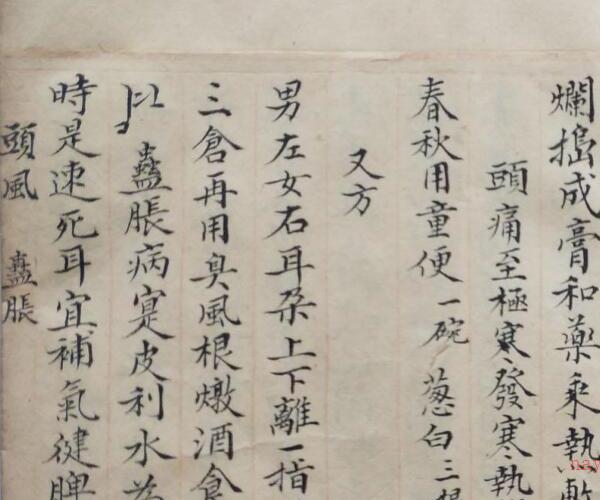 爛搗成膏和藥乘熱敷
頭痛至極寒發寒執
春秋用童便一碗葱白三
又方
男左女右耳朶上下離一指
三倉再用臭風根燉酒食
蠱脹病寔皮利水為
時是速死耳宜補氣健脾
頭風 蠱脹